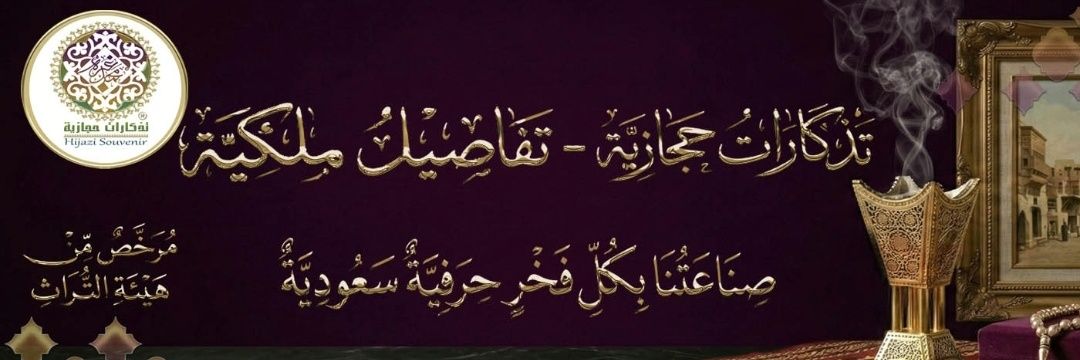 تذكارات حجازية
Hijazi Souvenir
تَذْكَارَاتُ حَجَازِيَّة - تَفَاصِيْلُ مِلَكِيَّة
صِنَاعَتُنَا بِكُلِّ فَخْرٍ حِرَفِيَّةٌ سَعُودِيَّةٌ
مُرَخَّصٌ مِّنْ
هَيْئَةِ التُّرَاثِ